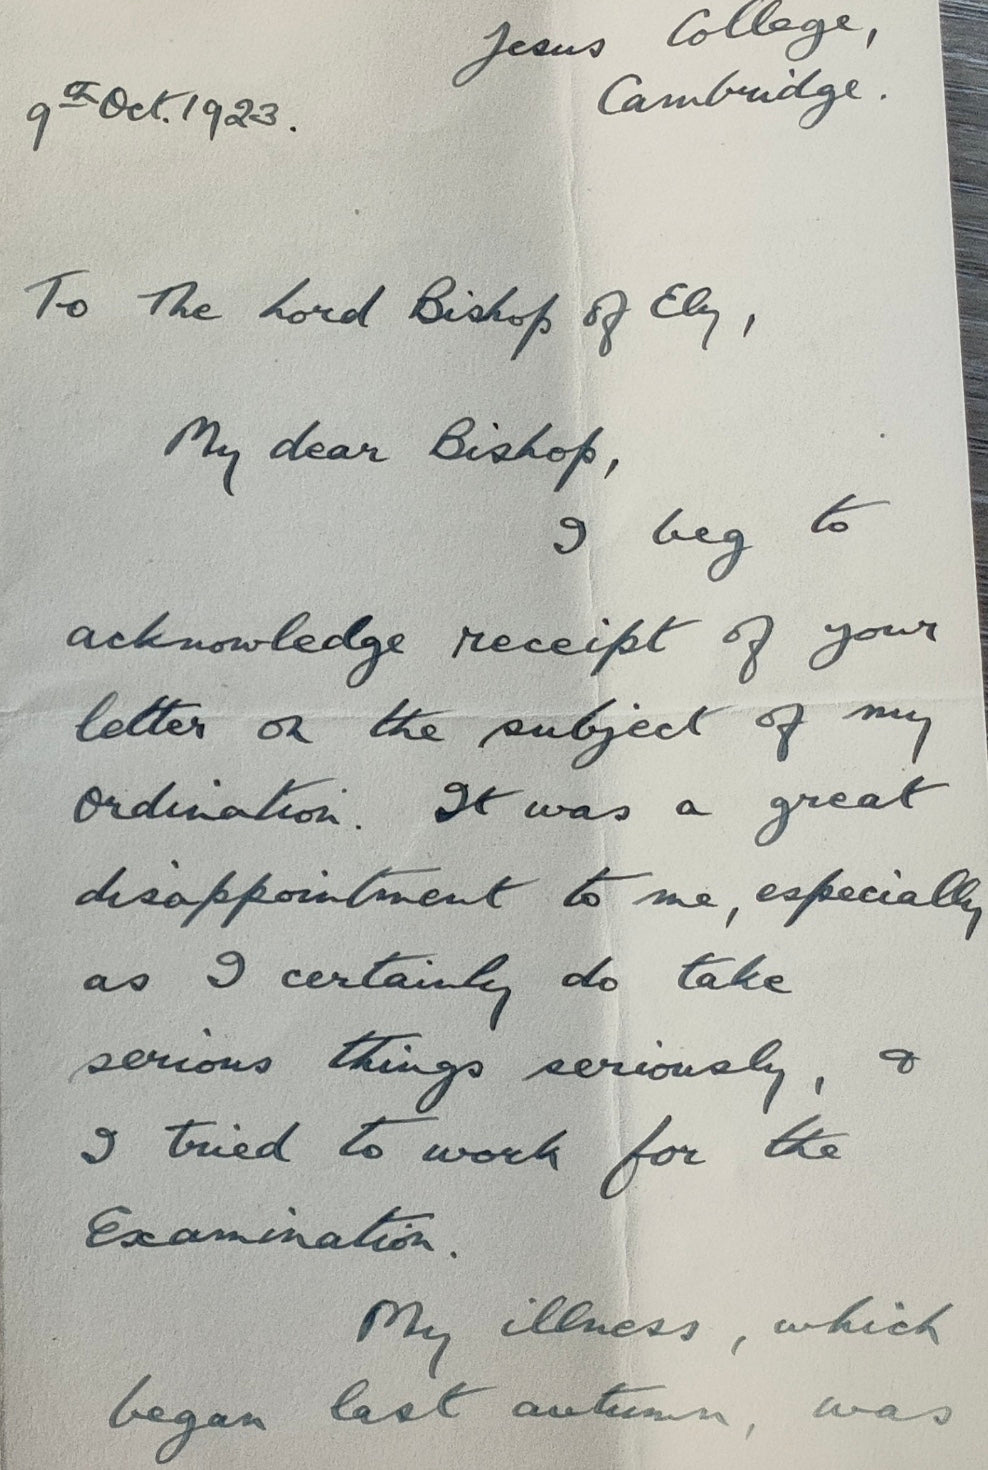 Jesus College,
Cambridge.
9th Oct. 1923.
To The Lord Bishop of Ely,
My dear Bishop,
I beg to
acknowledge receipt of your
letter on the subject of my
Ordination. It was a great
disappointment to me, especially
as I certainly do take
serious things seriously, &
I tried to work for the
Examination.
My illness, which
began last autumn, was